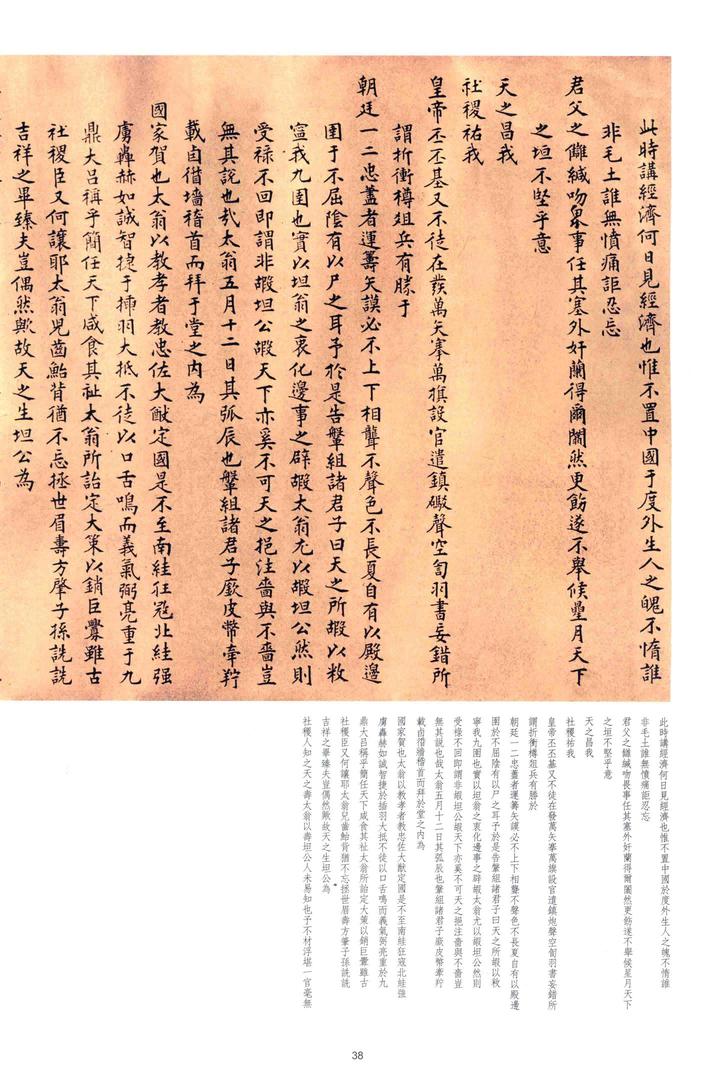 此時講經濟何日見經濟也惟不置中國于度外生人之魄不惰誰
非毛土誰無憤痛詎忍忘
君父之雠緘吻畏事任其塞外奸蘭得爾闌然更飭遂不舉候星月天下
之垣不堅乎意
天之昌我
社稷祐我
皇帝丕丕基又不徒在發萬矢搴萬旗設官遣鎮礮聲空匌羽書妄錯所
謂折衝樽俎兵有勝于
朝廷一二忠藎者運籌矢謨必不上下相聾不聲色不長夏自有以殿邊
圉于不屈陰有以尸之耳予於是告鞶組諸君子曰天之所嘏以敉
寍我九圉也實以坦翁之衷化邊事之辟嘏太翁尤以嘏坦公然則
受祿不回即謂非嘏坦公嘏天下亦奚不可天之挹注嗇與不嗇豈
無其說也哉太翁五月十二日其弧辰也鞶組諸君子厥皮幣牽羜
載卣偕墻稽首而拜于堂之内為
國家賀也太翁以教孝者教忠佐大猷定國是不至南絓狂寇北絓强
虜轟赫如誠智捷于揷羽大抵不徒以口舌鳴而義氣弼亮重于九
鼎大吕稱乎簡任天下咸食其祉太翁所詒定大策以銷巨釁雖古
社稷臣又何讓耶太翁兒齒鮐背猶不忘拯世眉壽方肇子孫詵詵
吉祥之畢臻夫豈偶然歟故天之生坦公為
此時講經濟何日見經濟也惟不置中國於度外生人之魄不惰誰
非毛土誰無憤痛詎忍忘
君父之雠緘吻畏事任其塞外奸蘭得爾闌然更飭遂不舉候星月天下
之垣不堅乎意
天之昌我
社稷祐我
皇帝丕丕基又不徒在發萬矢搴萬旗設官遣鎮炮聲空匌羽書妄錯所
謂折衝樽俎兵有勝於
朝廷一二忠藎者運籌矢謨必不上下相聾不聲色不長夏自有以殿邊
圉於不屈陰有以尸之耳予於是告鞶組諸君子曰天之所嘏以敉
寧我九圉也實以坦翁之衷化邊事之辟嘏太翁尤以嘏坦公然則
受祿不回即謂非嘏坦公嘏天下亦奚不可天之挹注嗇與不嗇豈
無其說也哉太翁五月十二日其弧辰也鞶組諸君子厥皮幣牽羜
載卣偕墻稽首而拜於堂之内為
國家賀也太翁以教孝者教忠佐大猷定國是不至南絓狂寇北絓強
虜轟赫如誠智捷於插羽大抵不徒以口舌鳴而義氣弼亮重於九
鼎大吕稱乎簡任天下咸食其祉太翁所詒定大策以銷巨釁雖古
社稷臣又何讓耶太翁兒齒鮐背猶不忘拯世眉壽方肇子孫詵詵
吉祥之畢臻夫豈偶然歟故天之生坦公為
社稷人知之天之壽太翁以壽坦公人未易知也予不材浮堪一官毫無
38